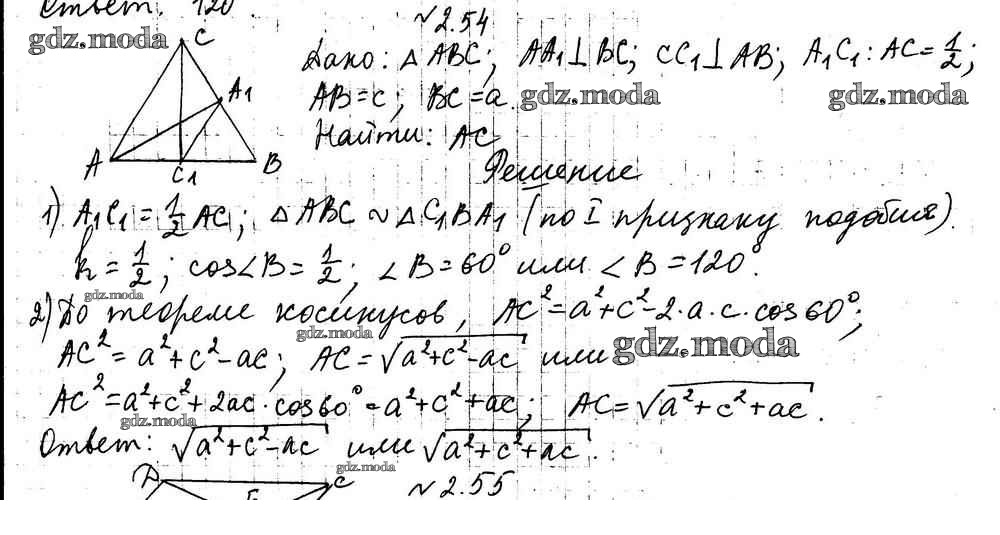 Ответ: 120°.
№2.54
gdz.moda
C
Дано: △ABC; AA₁⊥BC; CC₁⊥AB; A₁C₁:AC=1/2;
A₁
AB=c; BC=a.
gdz.moda
gdz.moda
Найти: AC
A
C₁
B
Решение
1) A₁C₁=1/2 AC; △ABC ~ △C₁BA₁ (по I признаку подобия).
k=1/2; cos∠B=1/2; ∠B=60° или ∠B=120°.
gdz.moda
2) По теореме косинусов, AC²=a²+c²-2·a·c·cos60°;
gdz.moda
AC²=a²+c²-ac; AC=√(a²+c²-ac) или
gdz.moda
AC²=a²+c²+2ac·cos60°=a²+c²+ac; AC=√(a²+c²+ac).
gdz.moda
Ответ: √(a²+c²-ac) или √(a²+c²+ac).
gdz.moda
C
№2.55